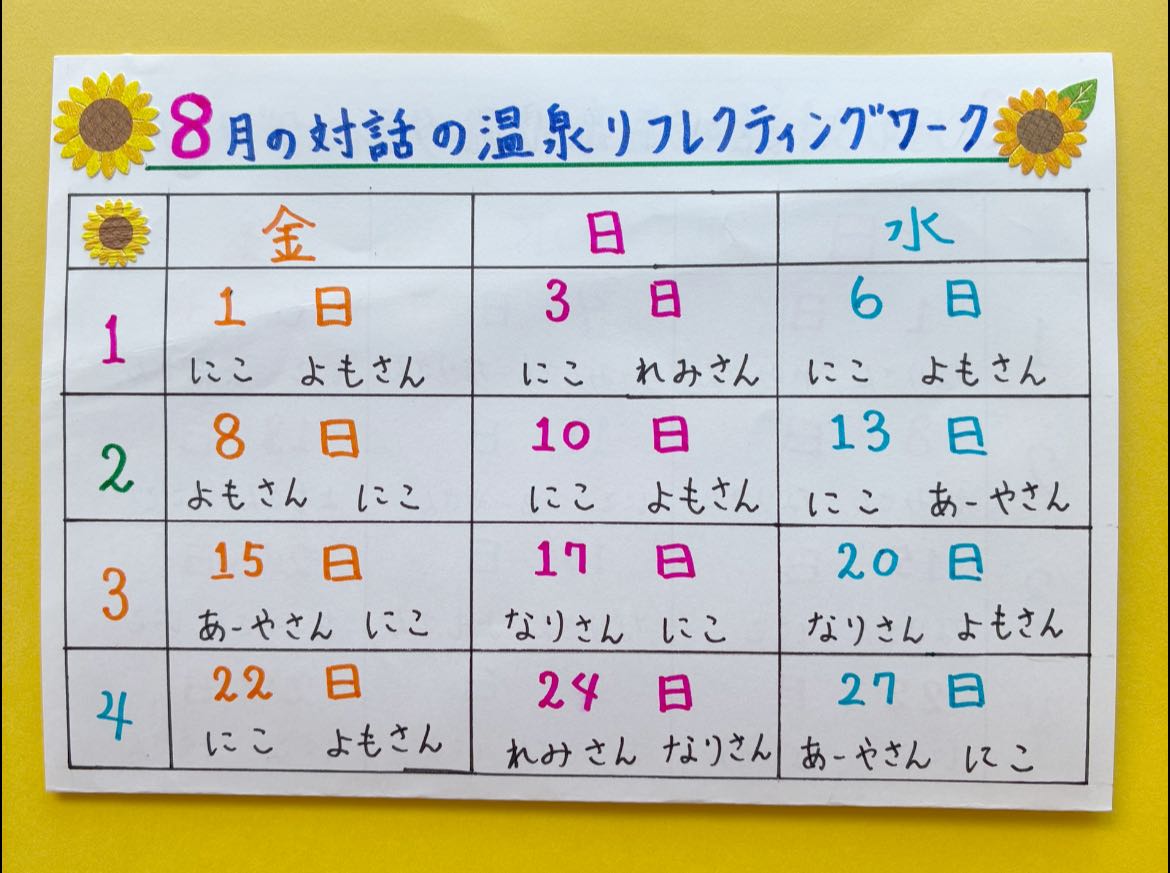 8月の対話の温泉リフレクティングワーク
金 日 水
1 1日 3日 6日
にこ よもさん にこ れみさん にこ よもさん
2 8日 10日 13日
よもさん にこ にこ よもさん にこ あーやさん
3 15日 17日 20日
あーやさん にこ なりさん にこ なりさん よもさん
4 22日 24日 27日
にこ よもさん れみさん なりさん あーやさん にこ